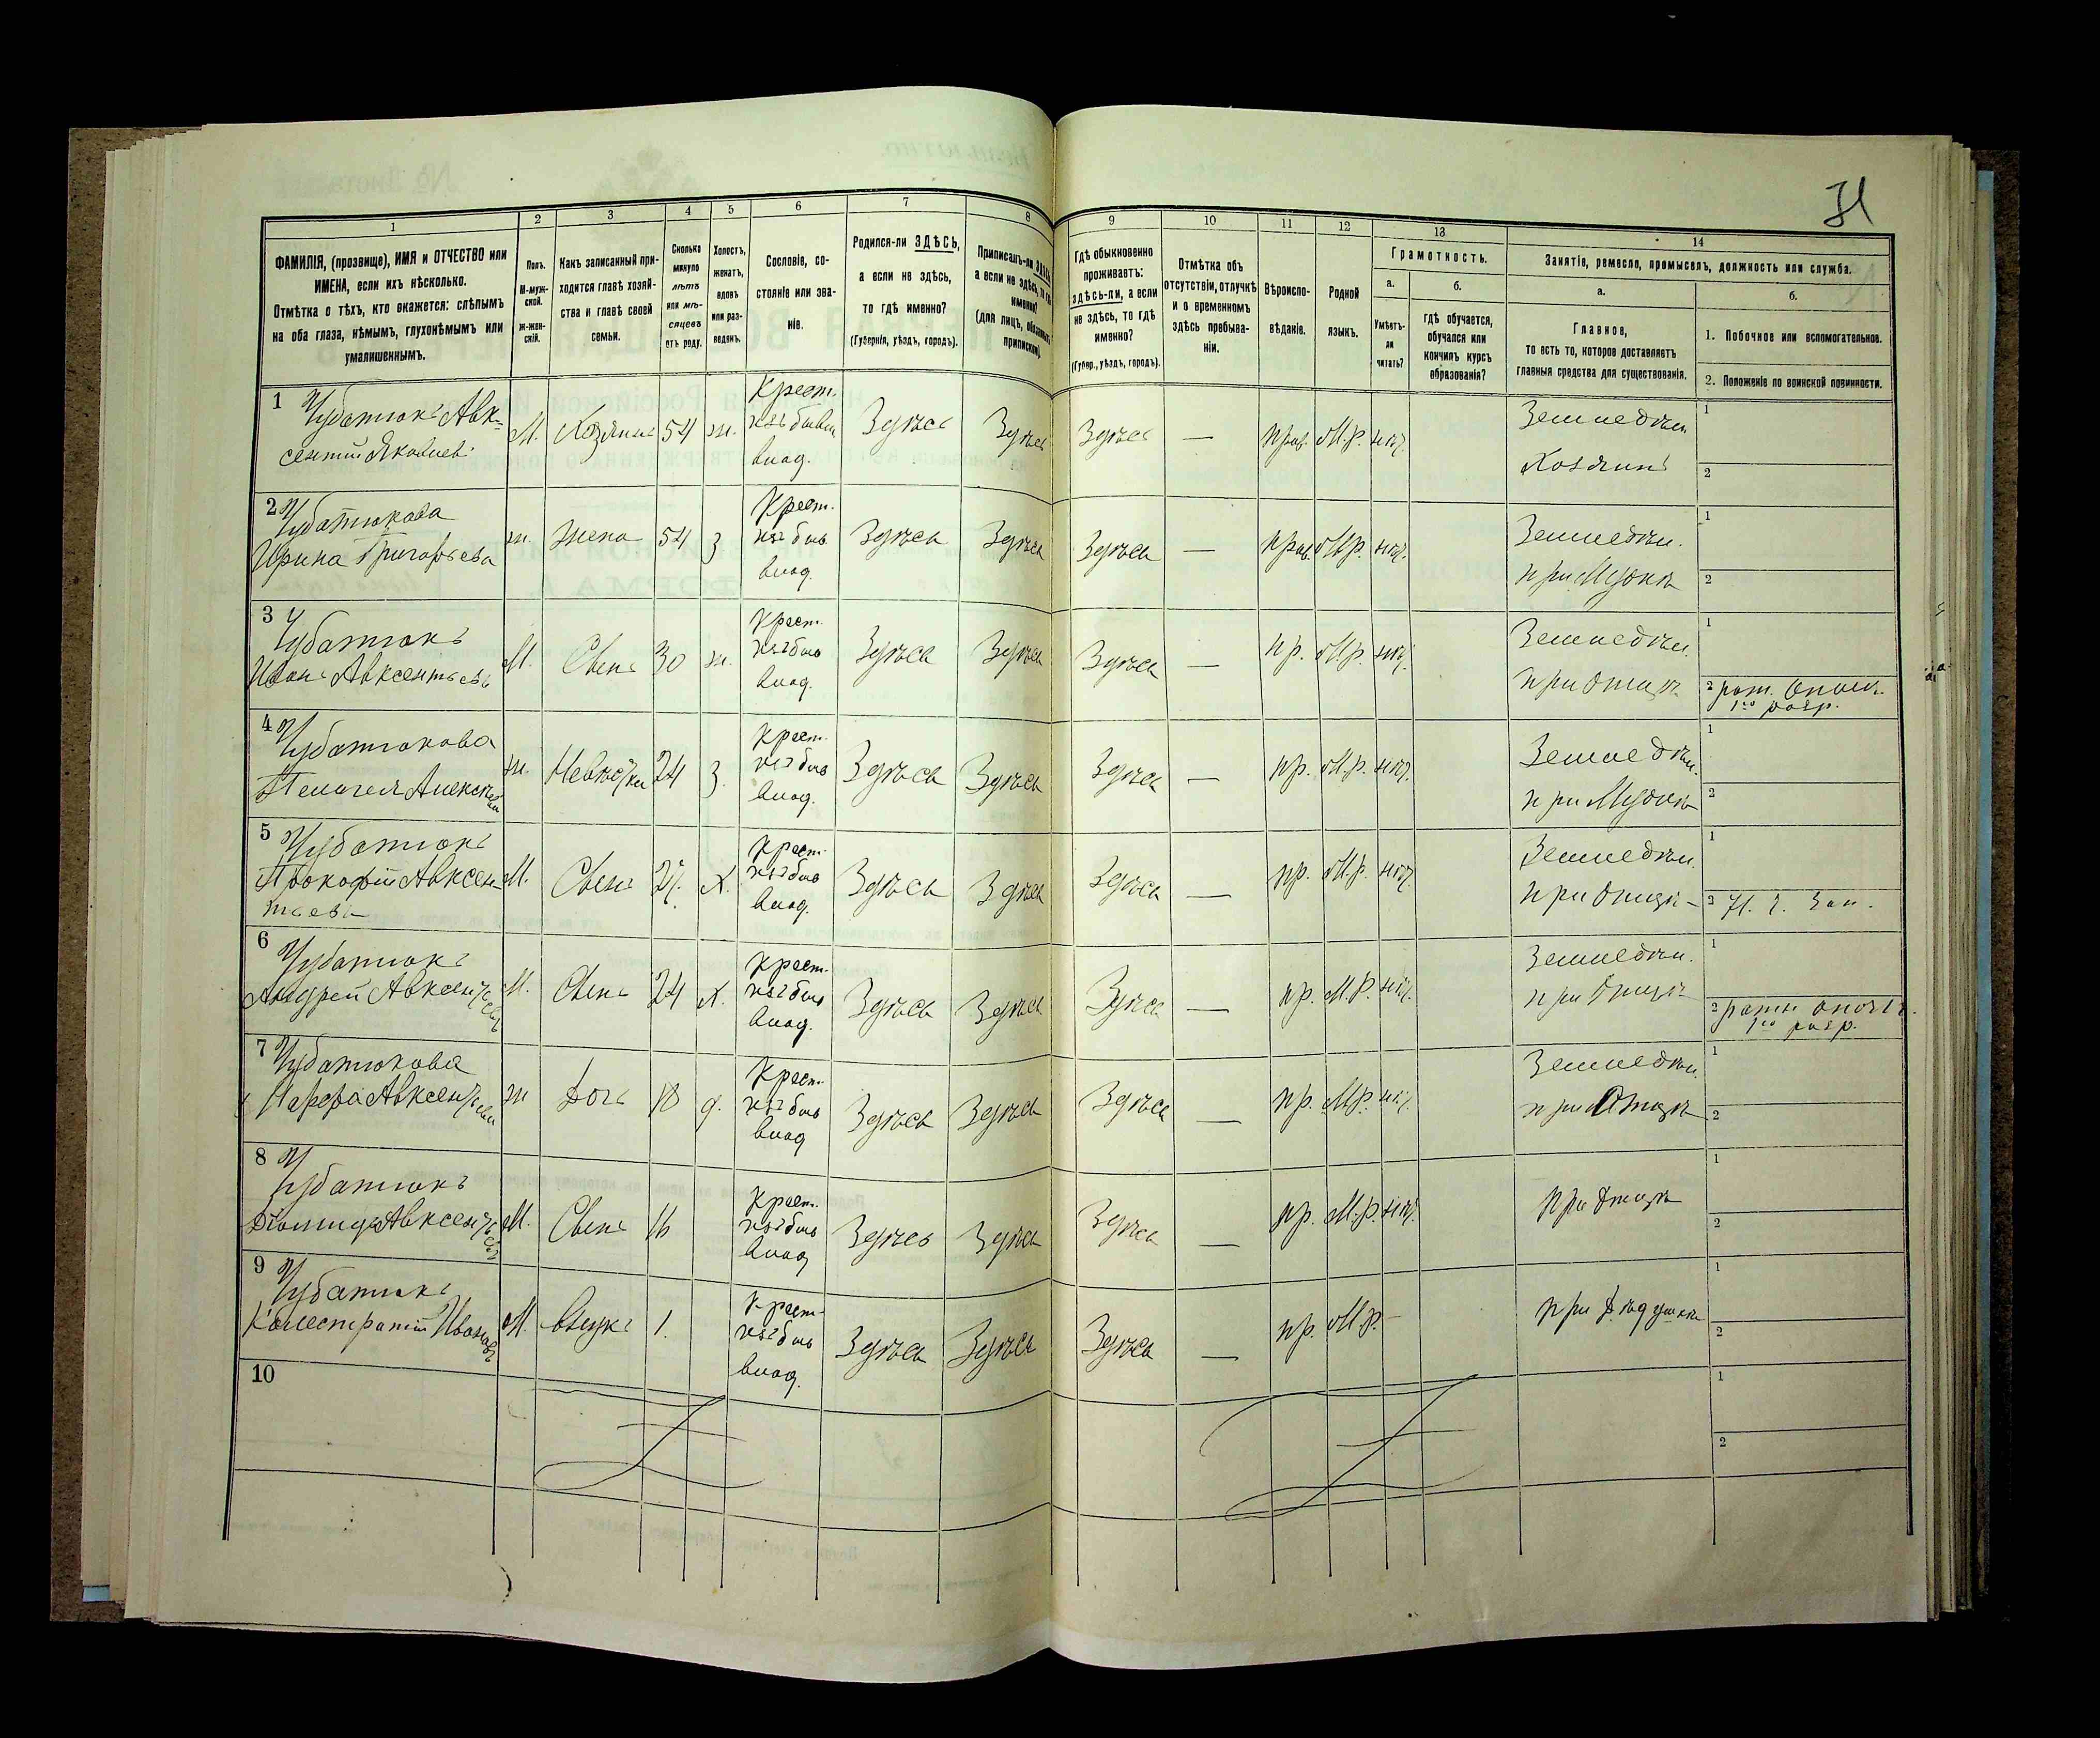 И
1 2 3 4 5 6 7 8 9 10 11 12 13 14
ФАМИЛІЯ, (прозвище), ИМЯ и ОТЧЕСТВО или
ИМЕНА, если ихъ нѣсколько.
Отмѣтка о тѣхъ, кто окажется: слѣпымъ
на оба глаза, нѣмымъ, глухонѣмымъ или
умалишеннымъ.
Полъ.
М-муж-
ской.
ж-жен-
скій.
Какъ записанный при-
ходится главѣ хозяй-
ства и главѣ своей
семьи.
Сколько
минуло
лѣтъ
или мѣ-
сяцевъ
отъ роду.
Холостъ,
женатъ,
вдовъ
или раз-
веденъ.
Сословіе, со-
стояніе или зва-
ніе.
Родился-ли ЗДѢСЬ,
а если не здѣсь,
то гдѣ именно?
(Губернія, уѣздъ, городъ).
Приписанъ-ли ЗДѢСЬ,
а если не здѣсь, то гдѣ
именно?
(для лицъ, обязанныхъ
припиской).
Гдѣ обыкновенно
проживаетъ:
ЗДѢСЬ-ли, а если
не здѣсь, то гдѣ
именно?
(Губер., уѣздъ, городъ).
Отмѣтка объ
отсутствіи, отлучкѣ
и о временномъ
здѣсь пребыва-
ніи.
Вѣроиспо-
вѣданіе.
Родной
языкъ.
Грамотность.
а.
Умѣетъ-
ли
читать?
б.
гдѣ обучается,
обучался или
кончилъ курсъ
образованія?
Занятіе, ремесло, промыселъ, должность или служба.
а.
Главное,
то есть то, которое доставляетъ
главныя средства для существованія.
б.
1. Побочное или вспомогательное.
2. Положеніе по воинской повинности.
1 Чубатюкъ Авк-
сентій Яковлев.
М. Хозяинъ 54 ж.
Крест.
изъ бывш.
влад.
Здѣсь Здѣсь Здѣсь — прав. М.р. нѣт.
Земледѣл.
Хозяинъ
1
2
2 Чубатюкова
Ирина Григорьева
ж. жена 54 З
Крест.
изъ быв
влад.
Здѣсь Здѣсь Здѣсь — прав. М.р. нѣт.
Земледѣл.
при Мужѣ
1
2
3 Чубатюкъ
Иванъ Авксентьевъ
М. Сынъ 30 ж.
Крест.
изъ быв
влад.
Здѣсь Здѣсь Здѣсь — пр. М.р. нѣт.
Земледѣл.
при Отцѣ
1
2 рат. Ополч.
1го разр.
4 Чубатюкова
Пелагея Алексѣева
ж. Невѣстка 24 З.
Крест.
изъ быв
влад.
Здѣсь Здѣсь Здѣсь — пр. М.р. нѣт.
Земледѣл.
при Мужѣ
1
2
5 Чубатюкъ
Прокофій Авксен-
тьевъ
М. Сынъ 27. Х.
Крест.
изъ быв
влад.
Здѣсь Здѣсь Здѣсь — пр. М.р. нѣт.
Земледѣл.
при Отцѣ
1
2 Зап.
6 Чубатюкъ
Андрей Авксентьевъ
М. Сынъ 24 Х.
Крест.
изъ быв
влад.
Здѣсь Здѣсь Здѣсь — пр. М.р. нѣт.
Земледѣл.
при Отцѣ
1
2 ратн. ополч.
1го разр.
7 Чубатюкова
Авксентьева
ж Дочь 18 д.
Крест.
изъ быв
влад
Здѣсь Здѣсь Здѣсь — пр. М.р. нѣт.
Земледѣл.
при Отцѣ
1
2
8 Чубатюкъ
Діомидъ Авксентьевъ
М. Сынъ 16
Крест.
изъ быв
влад
Здѣсь Здѣсь Здѣсь — пр. М.р. нѣт.
при Отцѣ
1
2
9 Чубатюкъ
Калестратій Ивановъ
М. внукъ 1.
Крест.
изъ быв
влад.
Здѣсь Здѣсь Здѣсь — пр. М.р. —
при Дѣдушкѣ
1
2
10
1
2